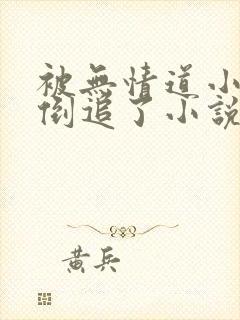 被無情道小
倒追了小說
黃兵